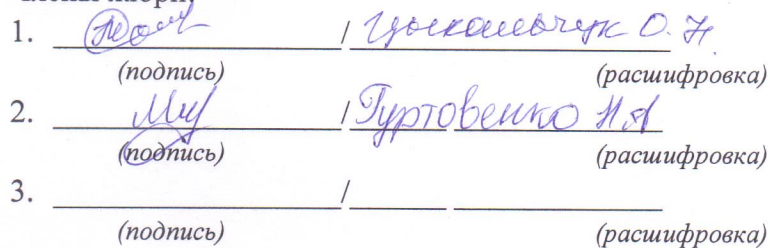 1. / О. Н.
(подпись) (расшифровка)
2. / Гуртовенко Н.А
(подпись) (расшифровка)
3. /
(подпись) (расшифровка)